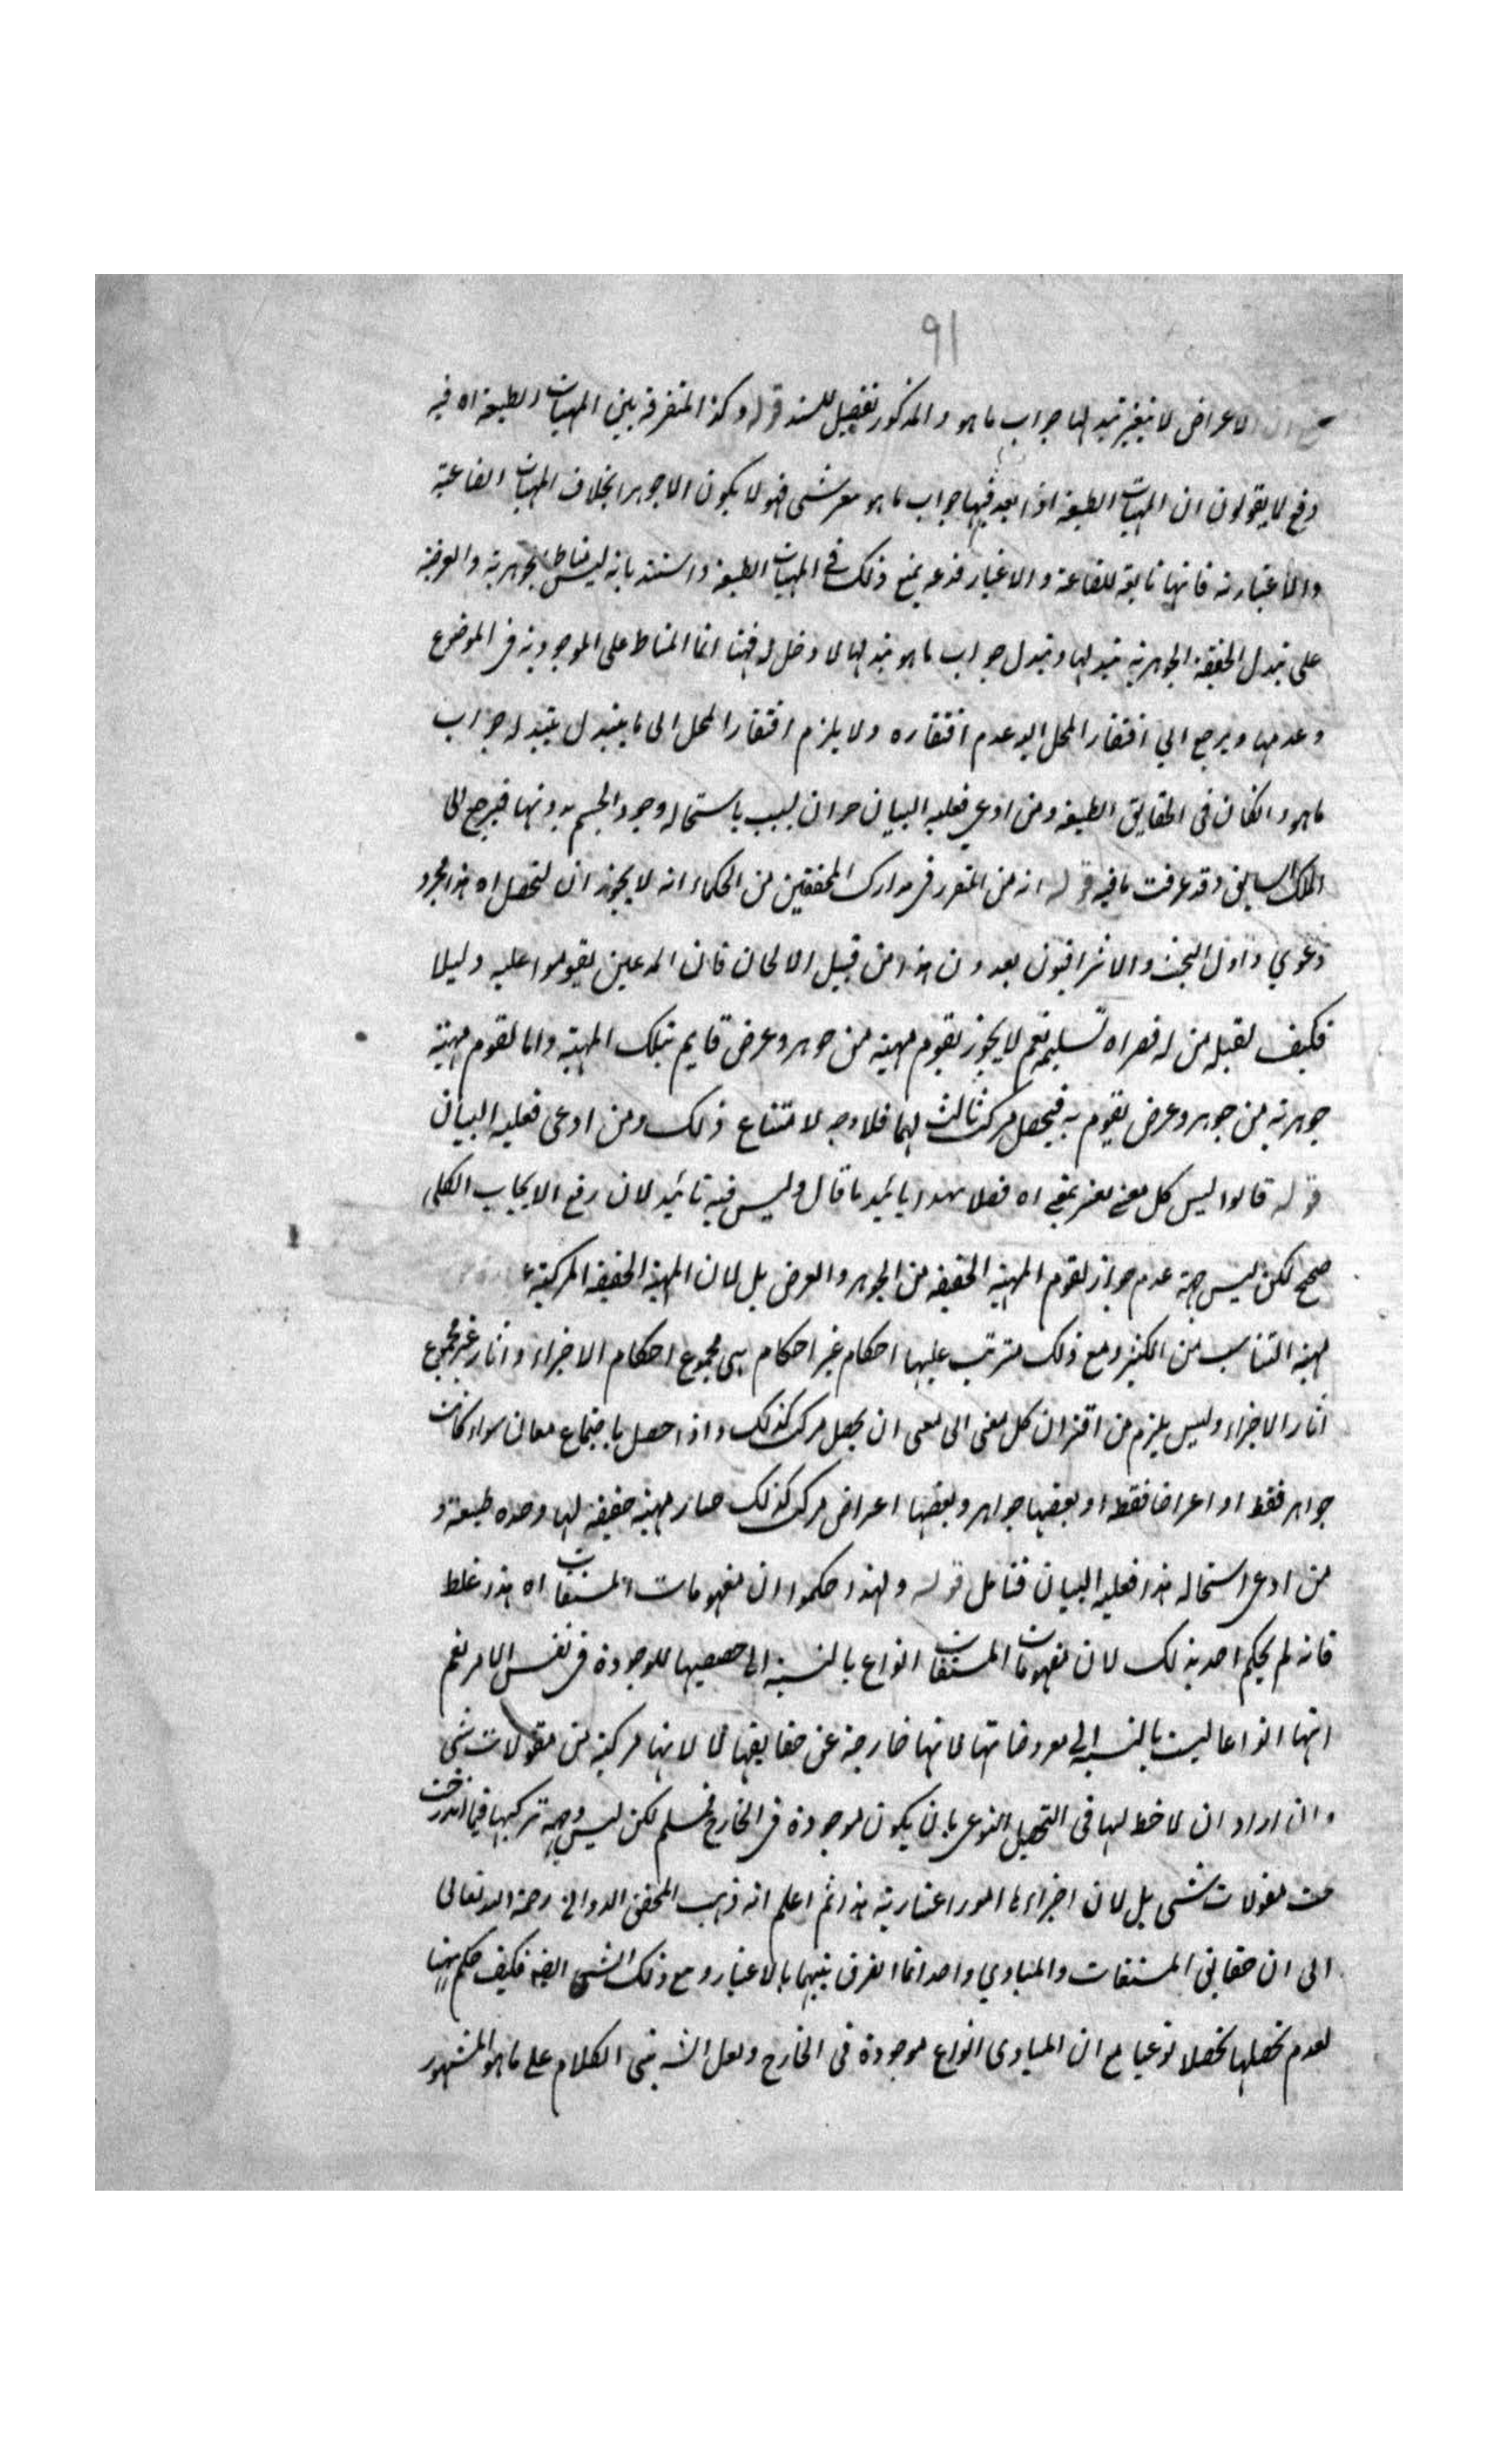 ٩١
الاعراض لا يتغير بتبدلها جواب ما هو والمذكور تفصيل للسند قوله وكذا التفرقة بين المهيات الطبيعة اه فيه
دفع لا يقولون ان المهيات الطبيعة اذا بعد فيها جواب ما هو شئ فهو لا يكون الا جوهرا بخلاف المهيات الصناعية
والاعتبارية فانها تابعة للصناعة والاعتبار يمنع ذلك في المهيات الطبيعة واستند بانه ليس مناط الجوهرية والعرضية
على تبدل الحقيقة الجوهرية بتبدلها وتبدل جواب ما هو بتبدلها لا دخل له فهنا انما المناط على الموجودية في الموضوع
وعدمها ويرجع الى افتقار المحل اليه وعدم افتقاره ولا يلزم افتقار المحل الى ما يتبدل بتبدله جواب
ما هو وان كان في الحقايق الطبيعة ومن ادعى فعليه البيان باستحالة وجود الجسم بدونها فيرجع الى
السابق وقد عرفت ما فيه قوله انه من المتقرر في مدارك المحققين من الحكماء انه لا يجوز ان يتحصل اه هذا مجرد
دعوى واول البحث والاشراقيون يعدون هذا من قبيل الالحان فان المدعين لم يقوموا عليه دليلا
فكيف يقبله من له نعم لا يجوز تقوم مهية من جوهر وعرض قايم بتلك المهية واما تقوم مهية
جوهرية من جوهر وعرض يقوم به فيحصل مركب ثالث لهما فلا وجه لامتناع ذلك ومن ادعى فعليه البيان
قوله قالوا ليس كل معنى يقترن بمعنى اه تأييد ما قال وليس فيه تائيد لان رفع الايجاب الكلى
صحيح لكن ليس جهة عدم جواز تقوم المهية الحقيقة من الجوهر والعرض بل لان المهية الحقيقة المركبة
مهية التناسب من الكثير ومع ذلك يترتب عليها احكام غير احكام هى مجموع احكام الاجزاء واثار غير مجموع
اثار الاجزاء وليس يلزم من اقتران كل معنى الى معنى ان يحصل مركب كذلك واذا حصل باجتماع معان سواء كانت
جواهر فقط او اعراضا فقط او بعضها جواهر وبعضها اعراض مركب كذلك صار مهية حقيقة لها وحدة طبيعة و
من ادعى استحالة هذا فعليه البيان فتامل قوله ولهذا حكموا ان مفهومات المشتقات اه هذا غلط
فانه لم يحكم احد بذلك لان مفهومات المشتقات انواع بالنسبة الى حصصها الموجودة في نفس الامر نعم
انها انواعا ليست بالنسبة الى معروضاتها لانها خارجة عن حقايقها لا لانها مركبة من مقولات شتى
وان اراد ان لا حظ لها في التحصل النوعى بان يكون موجودة في الخارج فمسلم لكن ليس وجهه تركبها فيما اندرجت
تحت مقولات شتى بل لان اجزاءها امور اعتبارية هذا ثم اعلم انه ذهب المحقق الدوانى رحمة الله تعالى
الى ان حقايق المشتقات والمبادى واحد انما الفرق بينهما بالاعتبار ومع ذلك الشئ ايضا فكيف حكم هنا
لعدم تحصلها تحصلا نوعيا مع ان المبادى انواع موجودة في الخارج ولعل الشه بنى الكلام على ما هو المشهور